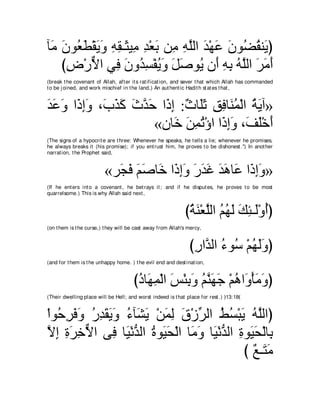 (يَنقُضُونَ عَهْدَ اللَّهِ مِن بَعْدِ مِيثَـقِهِ وَيَقْطَعُونَ مَآ
أَمَرَ اللَّهُ بِهِ أَن يُوصَلَ وَيُفْسِدُونَ فِي الاٌّرْضِ)
(break the covenant of Allah, after its ratification, and sever that which Allah has commanded
to be joined, and work mischief in the land.) An authentic Hadith states that,
«آيَةُ الْمُنَافِقِ ثَلَاثٌ: إِذَا حَدَّثَ كَذَبَ، وَإِذَا وَعَدَ
أَخْلَفَ، وَإِذَا اؤْتُمِنَ خَانَ»
(The signs of a hypocrite are three: Whenever he speaks, he tells a lie; whenever he promises,
he always breaks it (his promise); if you entrust him, he proves to be dishonest.") In another
narration, the Prophet said,
«وَإِذَا عَاهَدَ غَدَرَ وَإِذَا خَاصَمَ فَجَرَ»
(If he enters into a covenant, he betrays it; and if he disputes, he proves to be most
quarrelsome.) This is why Allah said next,
(أُوْلَـئِكَ لَهُمُ اللَّعْنَةُ)
(on them is the curse,) they will be cast away from Allah's mercy,
(وَلَهُمْ سُوءُ الدَّارِ)
(and for them is the unhappy home. ) the evil end and destination,
(وَمَأْوَاهُمْ جَهَنَّمُ وَبِئْسَ الْمِهَادُ)
(Their dwelling place will be Hell; and worst indeed is that place for rest. ) )13:18(
(اللَّهُ يَبْسُطُ الرِّزْقَ لِمَنْ يَشَآءُ وَيَقَدِرُ وَفَرِحُواْ
بِالْحَيَوةِ الدُّنْيَا وَمَا الْحَيَوةُ الدُّنْيَا فِى الاٌّخِرَةِ إِلاَّ
مَتَـعٌ )